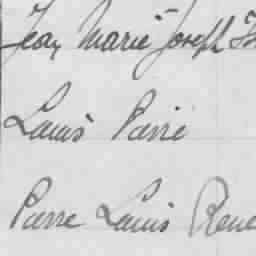 Jean Marie Joseph
Louis Pierre
Pierre Louis René